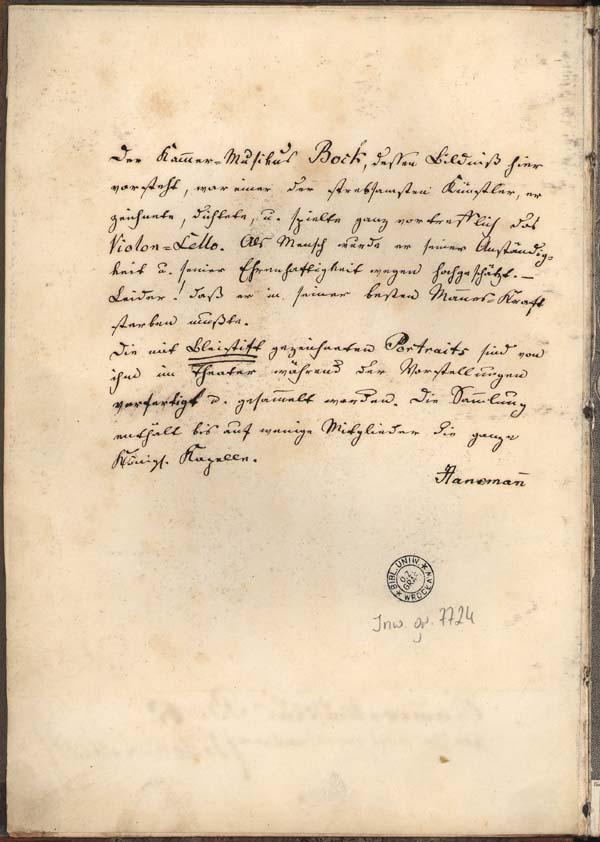 Der Kam̄er-Musikus Bock, dessen Bildniß hier
vorsteht, war einer der strebsamsten Künstler, er
zeichnete, dichtete, u. spielte ganz vortrefflich das
Violon=Cello. Als Mensch wurde er seiner Anständig=
keit u. seiner Ehrenhaftigkeit wegen hochgeschätzt. –
Leider! daß er in seiner besten Manes-Kraft
sterben mußte.
Die mit Bleistift gezeichneten Portraits sind von
ihm im Theater während der Vorstellungen
verfertigt u. gesam̄elt worden. Die Sam̄lung
enthält bis auf wenige Mitglieder die ganze
Königl. Kapelle.
Hansman̄
BIBL. UNIW. WROCŁAW
OZ.
GRAF.
Inw. gr. 7724